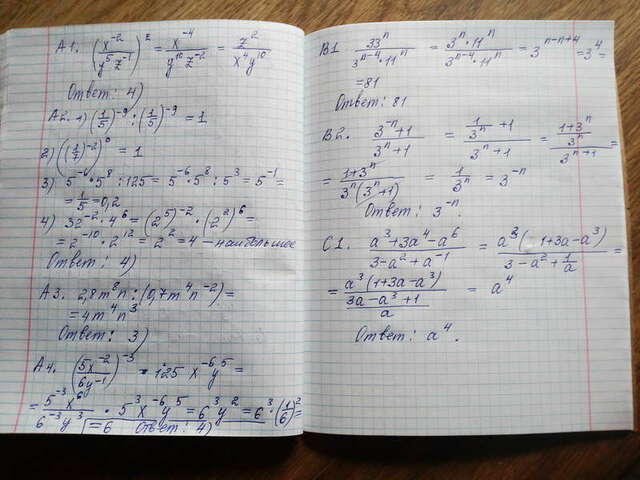 А1. (x⁻²/(y⁵z⁻¹))² = x⁻⁴/(y¹⁰z⁻²) = z²/(x⁴y¹⁰)
Ответ: 4)
А2. 1) (1/5)⁻⁹ : (1/5)⁻⁹ = 1
2) ((1/7)⁻²)⁰ = 1
3) 5⁻⁶·5⁸ : 125 = 5⁻⁶·5⁸ : 5³ = 5⁻¹ =
= 1/5 = 0,2
4) 32⁻²·4⁶ = (2⁵)⁻²·(2²)⁶ =
= 2⁻¹⁰·2¹² = 2² = 4 – наибольшее
Ответ: 4)
А3. 2,8m⁸n : (0,7m⁴n⁻²) =
= 4m⁴n³
Ответ: 3)
А4. (5x⁻²/(6y⁻¹))⁻³ · 125 x⁻⁶y⁵ =
= 5⁻³x⁶/(6⁻³y³) · 5³x⁻⁶y⁵ = 6³y² = 6³·(1/6)² =
= 6 Ответ: 4)
В1 33ⁿ/(3ⁿ⁻⁴·11ⁿ) = 3ⁿ·11ⁿ/(3ⁿ⁻⁴·11ⁿ) = 3ⁿ⁻ⁿ⁺⁴ = 3⁴ =
= 81
Ответ: 81
В2. (3⁻ⁿ+1)/(3ⁿ+1) = (1/3ⁿ +1)/(3ⁿ+1) = ((1+3ⁿ)/3ⁿ)/(3ⁿ+1) =
= (1+3ⁿ)/(3ⁿ(3ⁿ+1)) = 1/3ⁿ = 3⁻ⁿ
Ответ: 3⁻ⁿ.
С1. (a³+3a⁴-a⁶)/(3-a²+a⁻¹) = a³(1+3a-a³)/(3-a²+1/a) =
= a³(1+3a-a³)/((3a-a³+1)/a) = a⁴
Ответ: a⁴.